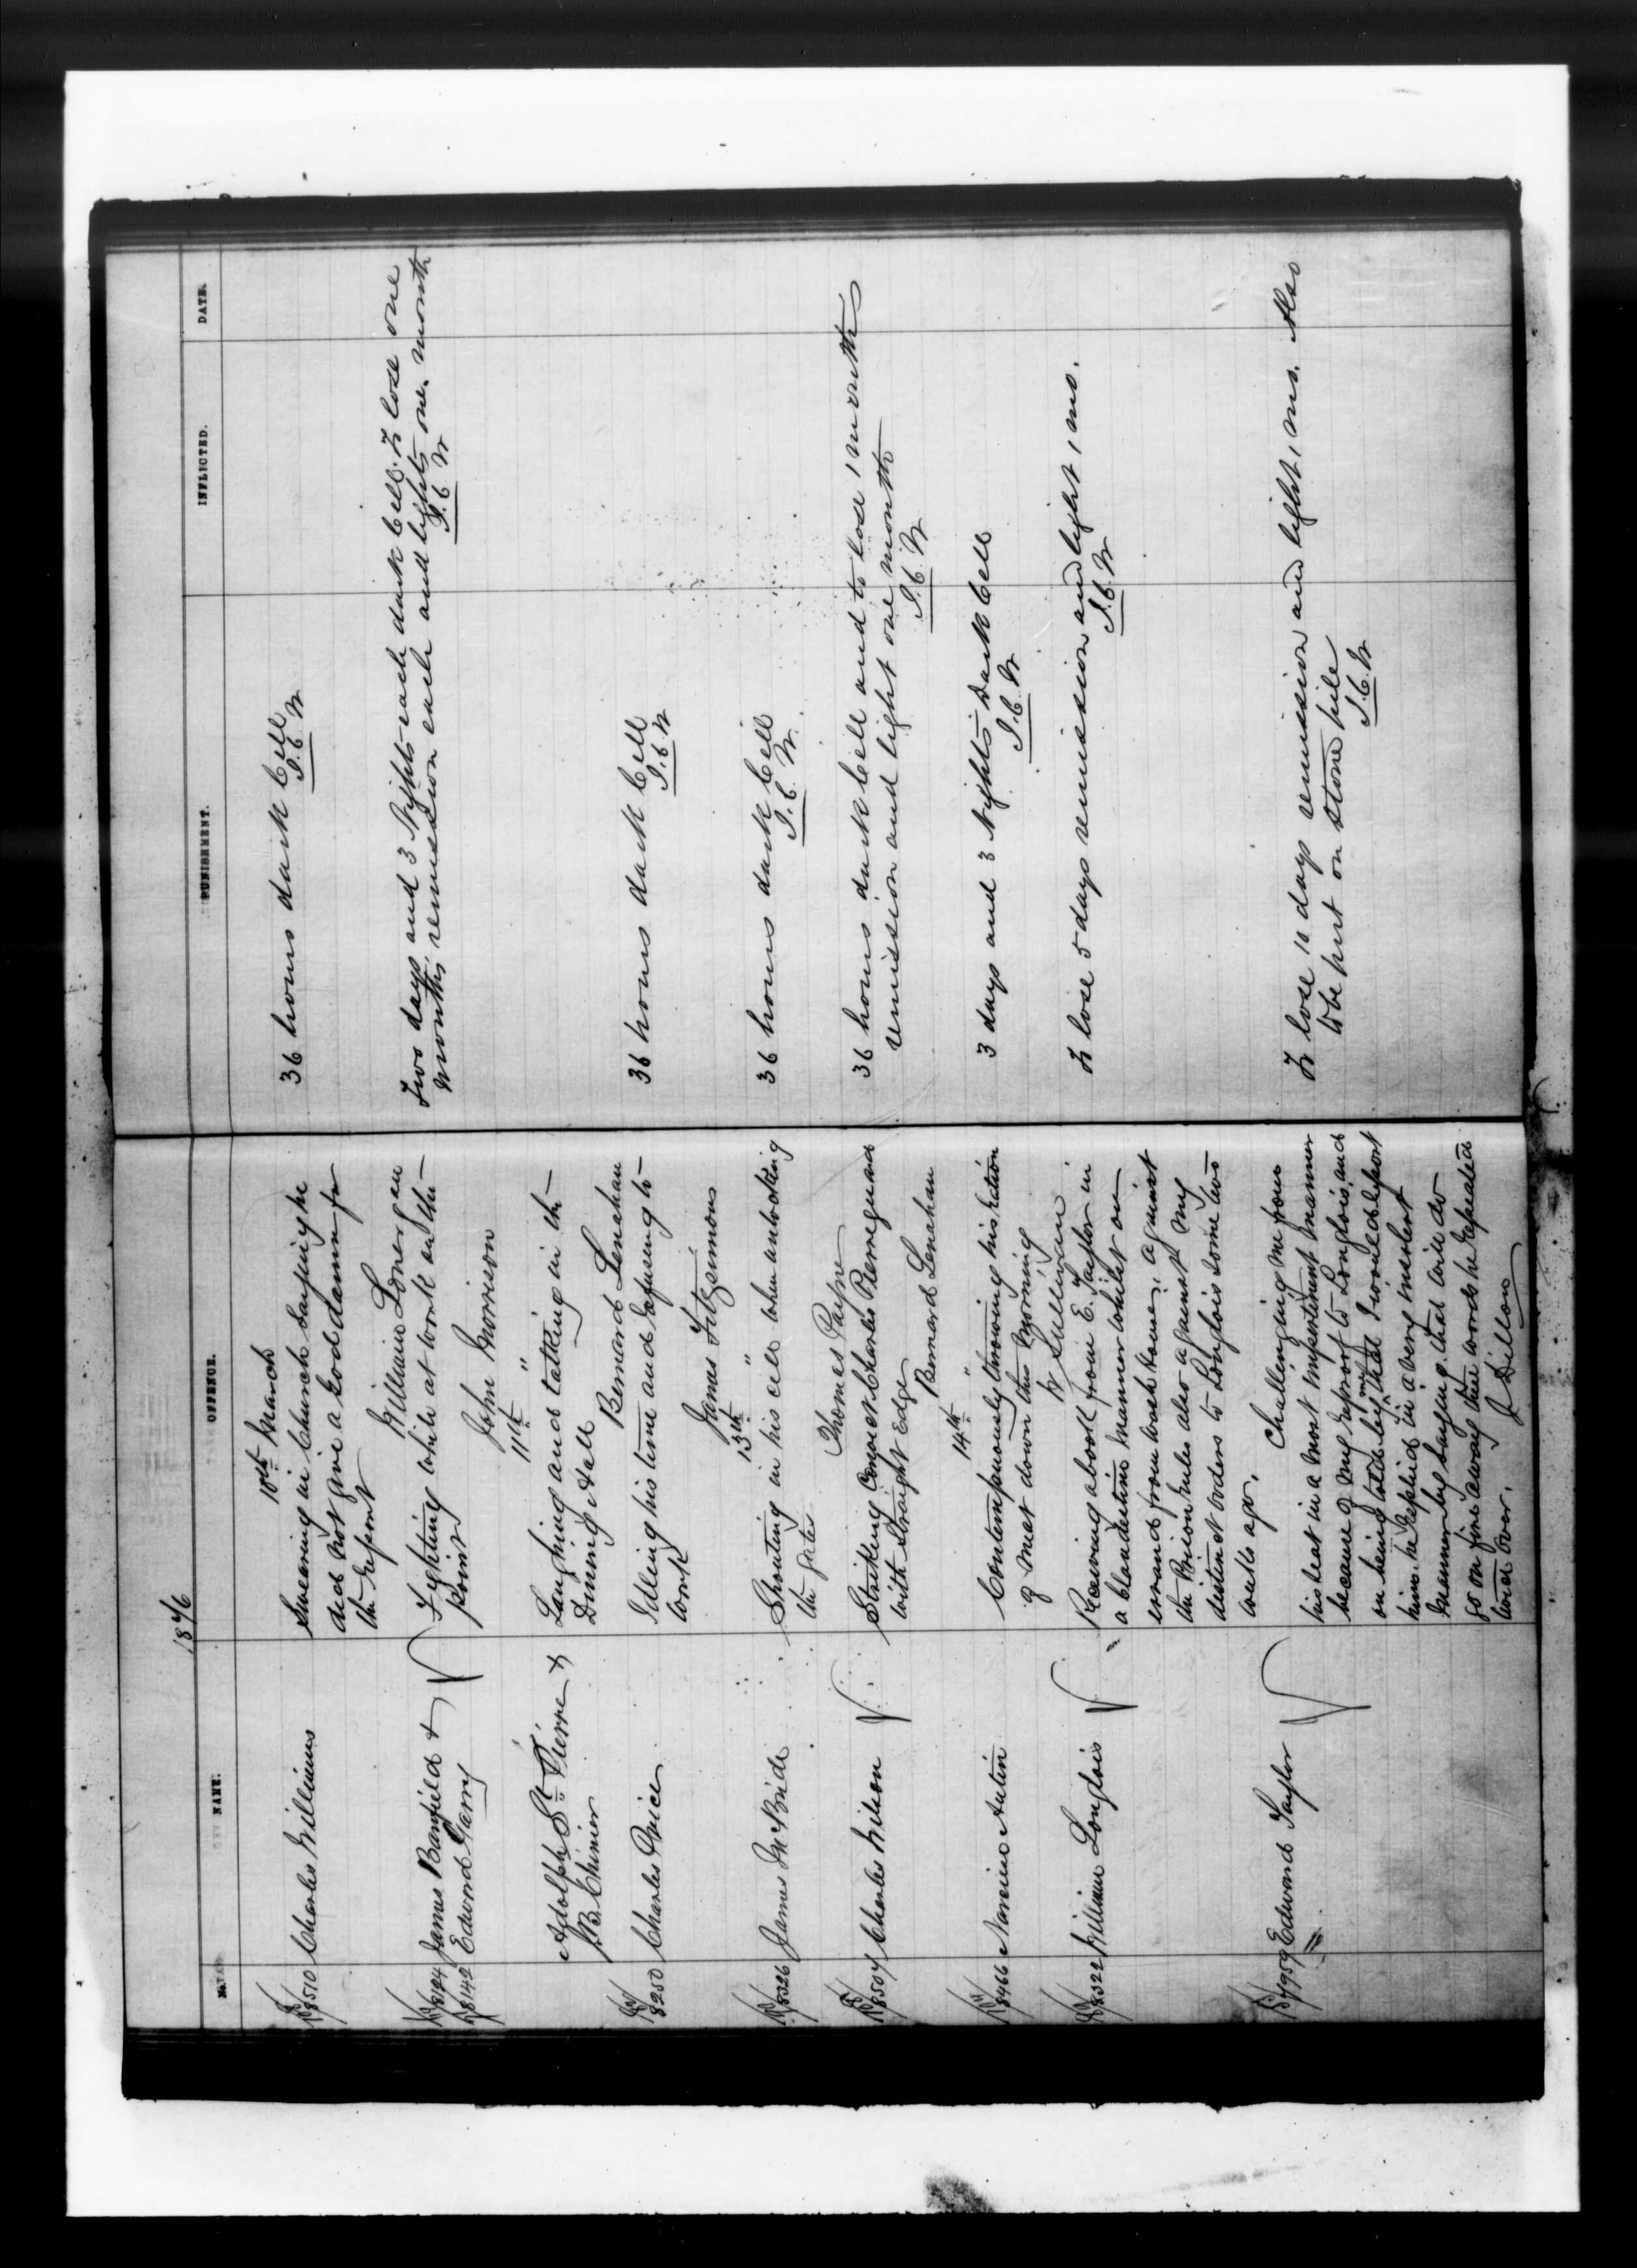 1876
No.
NAME.
OFFENCE.
PUNISHMENT.
INFLICTED.
DATE.
10th March
8510 Charles Williams
Swearing in Church saying he
did not give a God damn for
the report
William Lonergan
36 hours dark Cell
J. C. W
8124 James Banfield &
8142 Edward Garry
Fighting while at work on the
Point
John Morrison
Two days and 3 Nights each dark Cell. To lose one
months remission each and lights one month
J. C. W
11th "
Adolph St. Pierre &
B. Chinier
Laughing and talking in the
Dining Hall
Bernard Lenahan
8250 Charles Price
Idling his time and refusing to
work
James Fitzsimmons
36 hours dark Cell
J. C. W
13th "
8326 James McBride
Shouting in his cell when unlocking
the gates
Thomas Payne
36 hours dark Cell
J. C. W.
8504 Charles Wilson
Striking Convict Charles Pierreguard
with straight Edge
Bernard Lenahan
36 hours dark Cell and to lose 1 month
remission and light one month
J. C. W
14th "
8466 Narcisse Autin
Contemptuously throwing his ration
of meat down this morning
W Sullivan
3 days and 3 Nights dark Cell
J. C. W
8322 William Longlois
Receiving a book from E. Taylor in
a clandestine manner whilst on
errand from wash house, against
the Prison rules also against my
distinct orders to Longlois some two
weeks ago.
To lose 5 days remission and light 1 mo.
J. C. W
7959 Edward Taylor
Challenging me from
his seat in a most impertinent manner
because of my report to Longlois, and
on being told by me that I would report
him. he replied in a very insolent
manner by saying. that will do
go on fire away these words he repeated
twice over.
J Dillon
To lose 10 days remission and light 1 mo. Also
to be put on stone pile
J. C. W